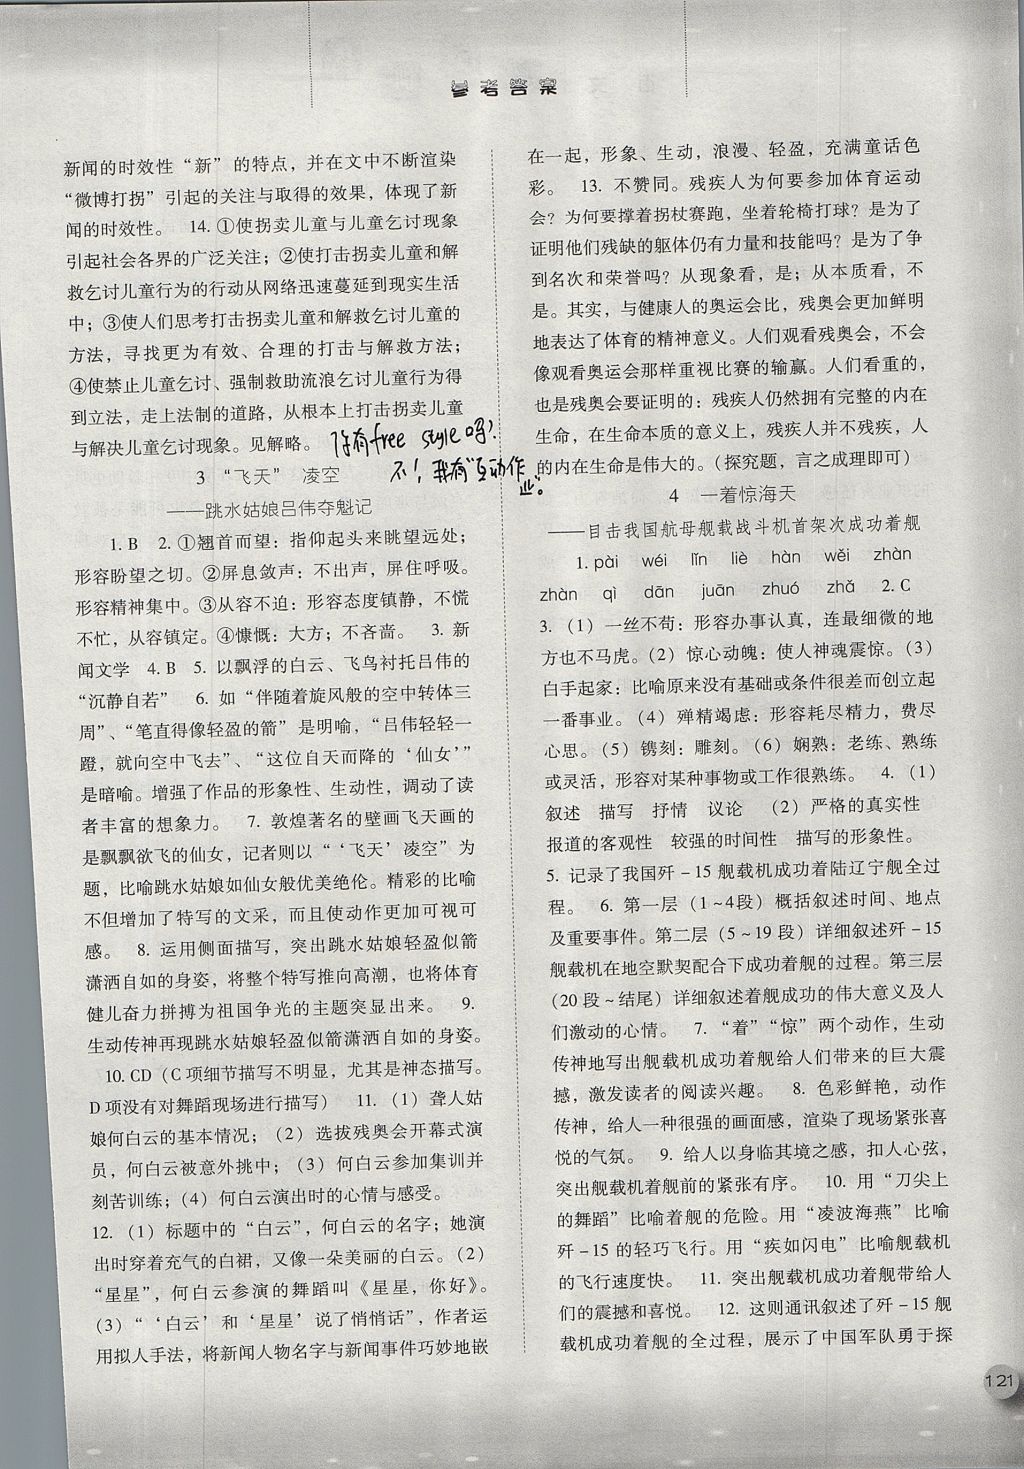 参考答案
新闻的时效性“新”的特点，并在文中不断渲染
“微博打拐”引起的关注与取得的效果，体现了新
闻的时效性。　14. ①使拐卖儿童与儿童乞讨现象
引起社会各界的广泛关注；②使打击拐卖儿童和解
救乞讨儿童行为的行动从网络迅速蔓延到现实生活
中；③使人们思考打击拐卖儿童和解救乞讨儿童的
方法，寻找更为有效、合理的打击与解救方法；
④使禁止儿童乞讨、强制救助流浪乞讨儿童行为得
到立法，走上法制的道路，从根本上打击拐卖儿童
与解决儿童乞讨现象。见解略。
你有free style吗？
不！我有“互动作
业”。
3　“飞天”　凌空
——跳水姑娘吕伟夺魁记
1. B　2. ①翘首而望：指仰起头来眺望远处；
形容盼望之切。②屏息敛声：不出声，屏住呼吸。
形容精神集中。③从容不迫：形容态度镇静，不慌
不忙，从容镇定。④慷慨：大方；不吝啬。　3. 新
闻文学　4. B　5. 以飘浮的白云、飞鸟衬托吕伟的
“沉静自若”　6. 如“伴随着旋风般的空中转体三
周”、“笔直得像轻盈的箭”是明喻，“吕伟轻轻一
蹬，就向空中飞去”、“这位自天而降的‘仙女’”
是暗喻。增强了作品的形象性、生动性，调动了读
者丰富的想象力。　7. 敦煌著名的壁画飞天画的
是飘飘欲飞的仙女，记者则以“‘飞天’凌空”为
题，比喻跳水姑娘如仙女般优美绝伦。精彩的比喻
不但增加了特写的文采，而且使动作更加可视可
感。　8. 运用侧面描写，突出跳水姑娘轻盈似箭
潇洒自如的身姿，将整个特写推向高潮，也将体育
健儿奋力拼搏为祖国争光的主题突显出来。　9.
生动传神再现跳水姑娘轻盈似箭潇洒自如的身姿。
10. CD（C 项细节描写不明显，尤其是神态描写。
D 项没有对舞蹈现场进行描写）　11.（1）聋人姑
娘何白云的基本情况；（2）选拔残奥会开幕式演
员，何白云被意外挑中；（3）何白云参加集训并
刻苦训练；（4）何白云演出时的心情与感受。
12.（1）标题中的“白云”，何白云的名字；她演
出时穿着充气的白裙，又像一朵美丽的白云。（2）
“星星”，何白云参演的舞蹈叫《星星，你好》。
（3）“‘白云’和‘星星’说了悄悄话”，作者运
用拟人手法，将新闻人物名字与新闻事件巧妙地嵌
在一起，形象、生动，浪漫、轻盈，充满童话色
彩。　13. 不赞同。残疾人为何要参加体育运动
会？为何要撑着拐杖赛跑，坐着轮椅打球？是为了
证明他们残缺的躯体仍有力量和技能吗？是为了争
到名次和荣誉吗？从现象看，是；从本质看，不
是。其实，与健康人的奥运会比，残奥会更加鲜明
地表达了体育的精神意义。人们观看残奥会，不会
像观看奥运会那样重视比赛的输赢。人们看重的，
也是残奥会要证明的：残疾人仍然拥有完整的内在
生命，在生命本质的意义上，残疾人并不残疾，人
的内在生命是伟大的。（探究题，言之成理即可）
4　一着惊海天
——目击我国航母舰载战斗机首架次成功着舰
1. pài　wéi　lǐn　liè　hàn　wěi　zhàn
zhàn　qì　dān　juān　zhuó　zhǎ　2. C
3.（1）一丝不苟：形容办事认真，连最细微的地
方也不马虎。（2）惊心动魄：使人神魂震惊。（3）
白手起家：比喻原来没有基础或条件很差而创立起
一番事业。（4）殚精竭虑：形容耗尽精力，费尽
心思。（5）镌刻：雕刻。（6）娴熟：老练、熟练
或灵活，形容对某种事物或工作很熟练。　4.（1）
叙述　描写　抒情　议论　（2）严格的真实性
报道的客观性　较强的时间性　描写的形象性。
5. 记录了我国歼－15 舰载机成功着陆辽宁舰全过
程。　6. 第一层（1～4段）概括叙述时间、地点
及重要事件。第二层（5～19 段）详细叙述歼－15
舰载机在地空默契配合下成功着舰的过程。第三层
（20 段～结尾）详细叙述着舰成功的伟大意义及人
们激动的心情。　7. “着”“惊”两个动作，生动
传神地写出舰载机成功着舰给人们带来的巨大震
撼，激发读者的阅读兴趣。　8. 色彩鲜艳，动作
传神，给人一种很强的画面感，渲染了现场紧张喜
悦的气氛。　9. 给人以身临其境之感，扣人心弦，
突出舰载机着舰前的紧张有序。　10. 用“刀尖上
的舞蹈”比喻着舰的危险。用“凌波海燕”比喻
歼－15 的轻巧飞行。用“疾如闪电”比喻舰载机
的飞行速度快。　11. 突出舰载机成功着舰带给人
们的震撼和喜悦。　12. 这则通讯叙述了歼－15 舰
载机成功着舰的全过程，展示了中国军队勇于探
121